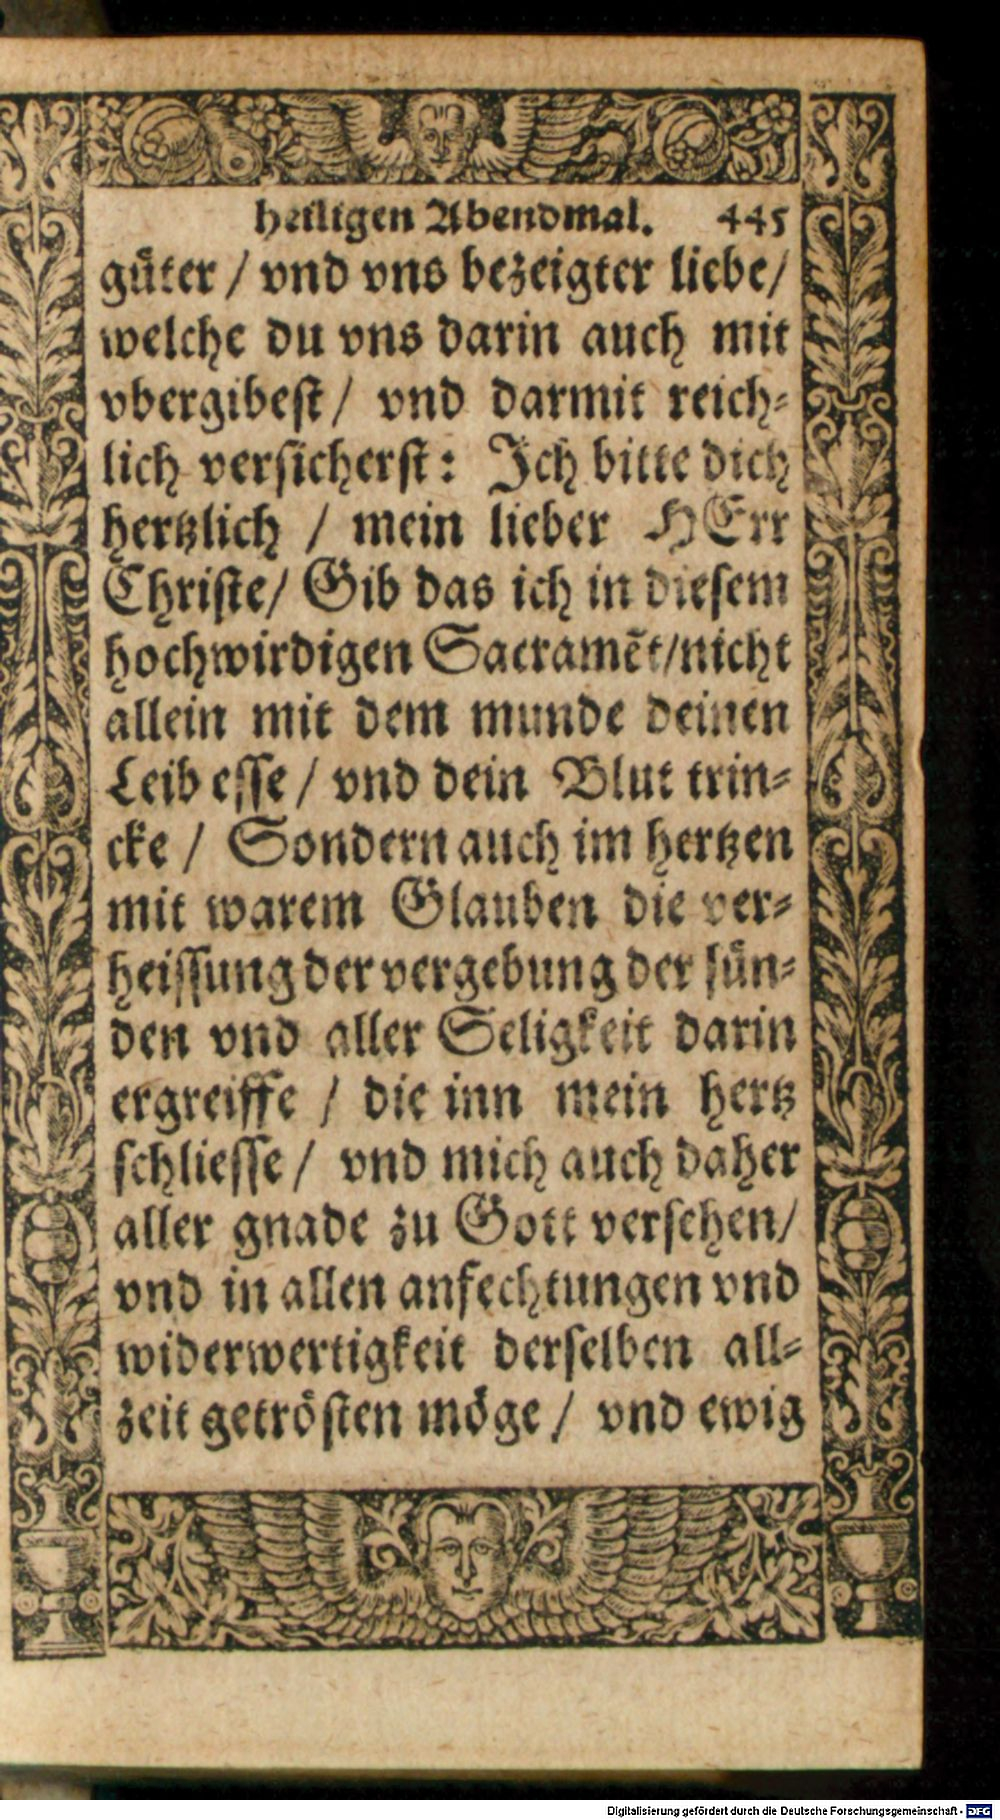 heiligen Abendmal. 445
guͤter / vnd vns bezeigter liebe/
welche du vns darin auch mit
vbergibeſt / vnd darmit reich⸗
lich verſicherſt: Ich bitte dich
hertzlich / mein lieber HErr
Chriſte/ Gib das ich in dieſem
hochwirdigen Sacramẽt/nicht
allein mit dem munde deinen
Leib eſſe / vnd dein Blut trin⸗
cke / Sondern auch im hertzen
mit warem Glauben die ver⸗
heiſſung der vergebung der ſuͤn⸗
den vnd aller Seligkeit darin
ergreiffe / die inn mein hertz
ſchlieſſe / vnd mich auch daher
aller gnade zu Gott verſehen/
vnd in allen anfechtungen vnd
widerwertigkeit derſelben all⸗
zeit getroͤſten moͤge / vnd ewig
Digitalisierung gefördert durch die Deutsche Forschungsgemeinschaft - DFG